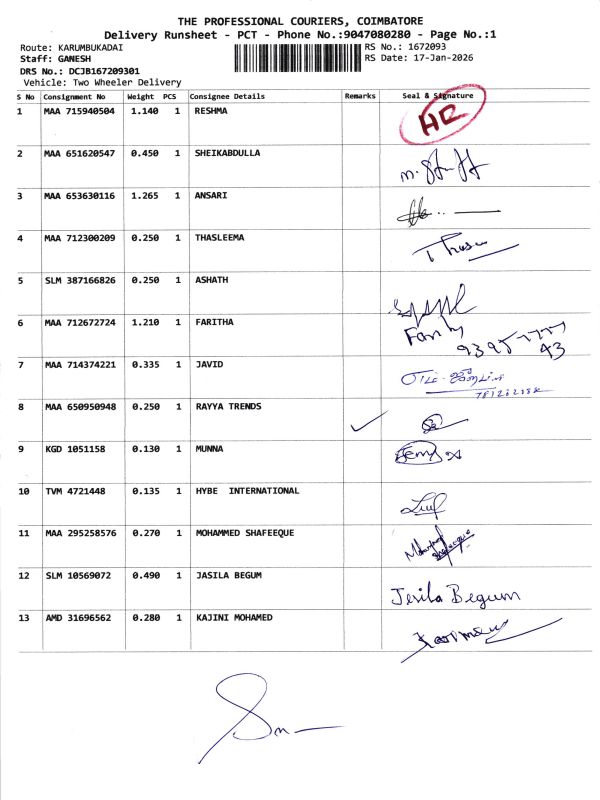 THE PROFESSIONAL COURIERS, COIMBATORE
Delivery Runsheet - PCT - Phone No.:9047080280 - Page No.:1
Route: KARUMBUKADAI RS No.: 1672093
Staff: GANESH RS Date: 17-Jan-2026
DRS No.: DCJB167209301
Vehicle: Two Wheeler Delivery
S No Consignment No Weight PCS Consignee Details Remarks Seal & Signature
1 MAA 715940504 1.140 1 RESHMA
2 MAA 651620547 0.450 1 SHEIKABDULLA
3 MAA 653630116 1.265 1 ANSARI
4 MAA 712300209 0.250 1 THASLEEMA
5 SLM 387166826 0.250 1 ASHATH
6 MAA 712672724 1.210 1 FARITHA
7 MAA 714374221 0.335 1 JAVID
8 MAA 650950948 0.250 1 RAYYA TRENDS
9 KGD 1051158 0.130 1 MUNNA
10 TVM 4721448 0.135 1 HYBE INTERNATIONAL
11 MAA 295258576 0.270 1 MOHAMMED SHAFEEQUE
12 SLM 10569072 0.490 1 JASILA BEGUM Jesila Begum
13 AMD 31696562 0.280 1 KAJINI MOHAMED